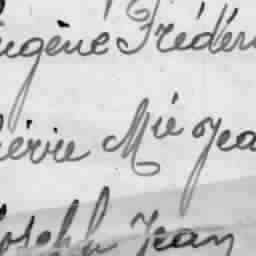 Eugène Frédéri
Mie Jea
Joseph Jean